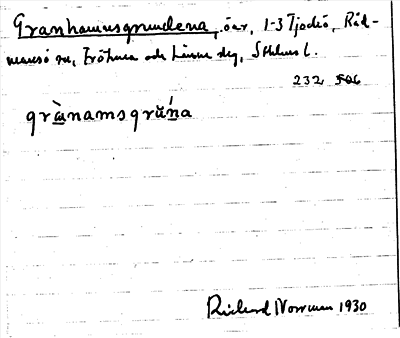 Granhamnsgrundena, öar, 1-3 Tjockö, Råd-
mansö sn, Frötuna och Länna skg, Sthlms l.
232 506
grànamsgrŭ́na
Rickard Norrman 1930